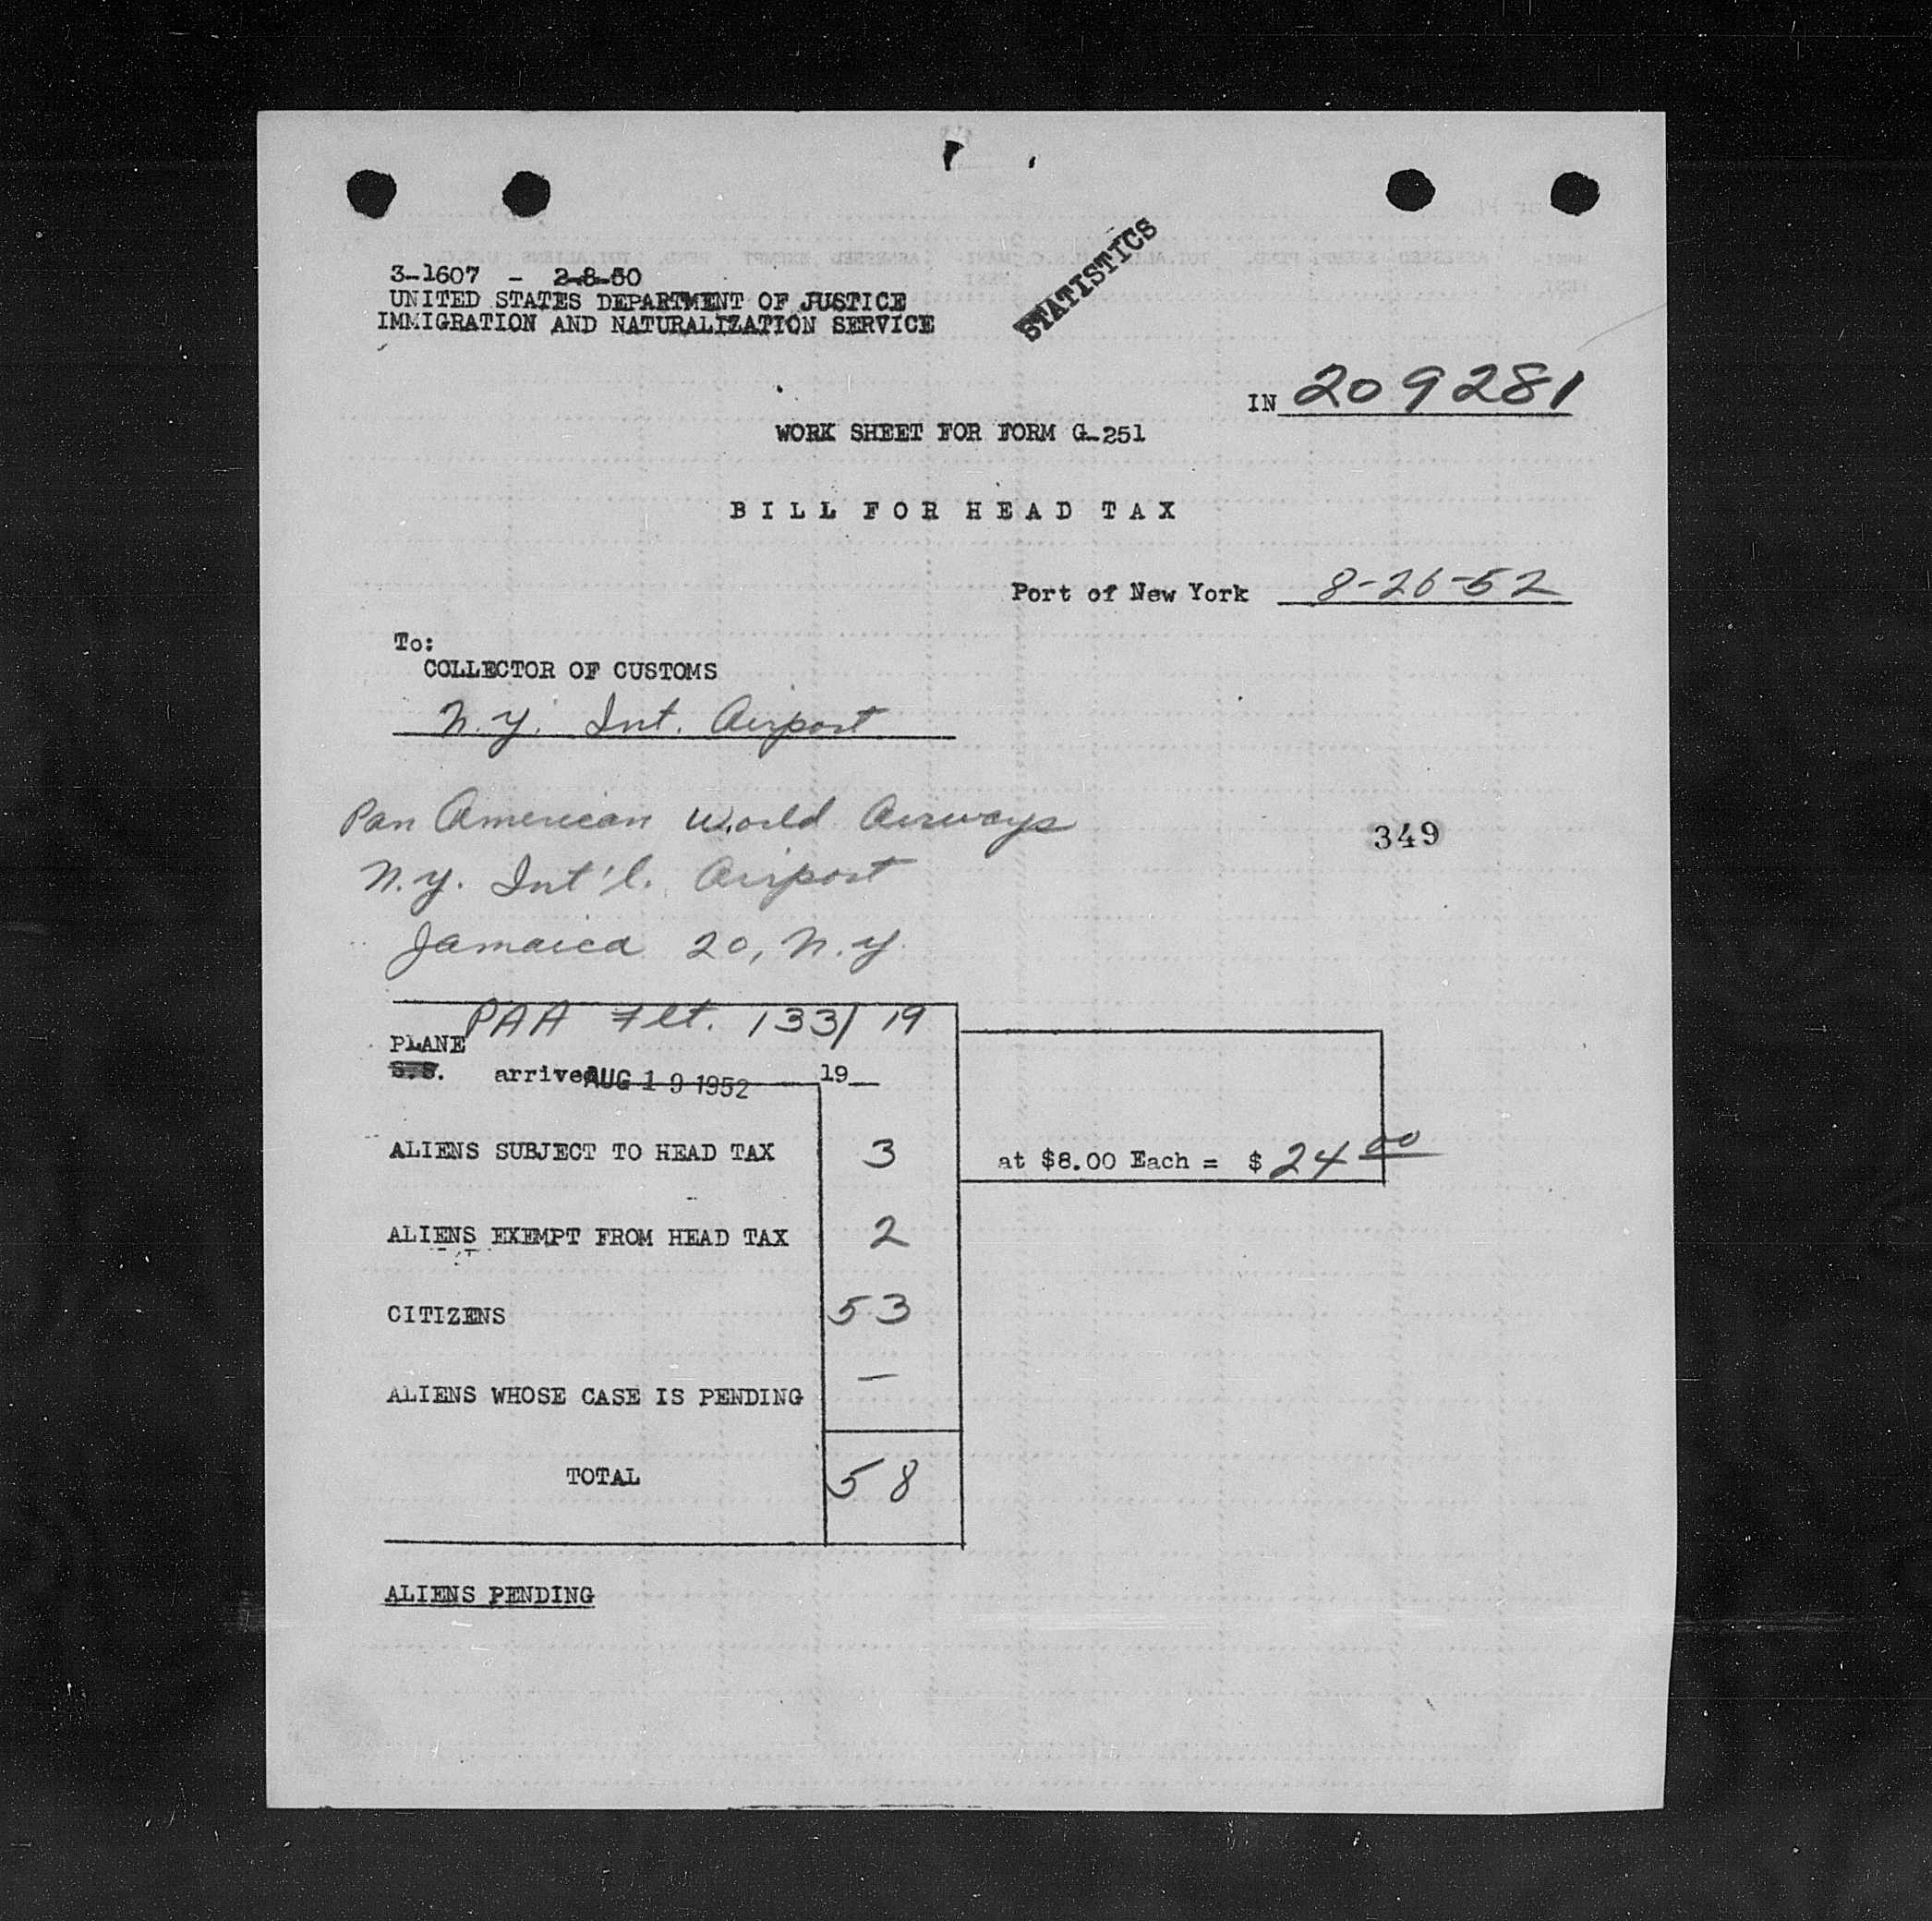 3-1607 - 2-8-50
UNITED STATES DEPARTMENT OF JUSTICE
IMMIGRATION AND NATURALIZATION SERVICE
STATISTICS
IN 209281
WORK SHEET FOR FORM G-251
BILL FOR HEAD TAX
Port of New York 8-26-52
To:
COLLECTOR OF CUSTOMS
N.Y. Int. Airport
Pan American World Airways
349
N.Y. Int'l. Airport
Jamaica 20, N.Y.
PAA Flt. 133/19
PLANE
S.S. arrived AUG 19 1952 19
ALIENS SUBJECT TO HEAD TAX 3 at $8.00 Each = $ 24 00
ALIENS EXEMPT FROM HEAD TAX 2
CITIZENS 53
ALIENS WHOSE CASE IS PENDING —
TOTAL 58
ALIENS PENDING